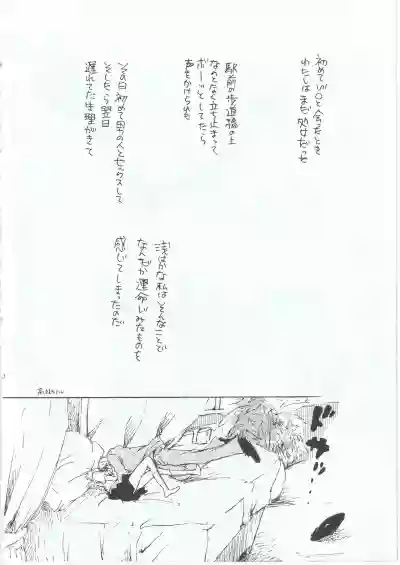 初めてVOと会ったとき
わたしはまだ処女だった
駅前の歩道橋の上
なんとなく立ち止まって
ボーッとしてたら
声をかけられた
その日初めて男の人とセックスして
そしたら翌日
遅れてた生理がきて
浅はかな私はそんなことで
なんだか運命じみたものを
感じてしまったのだ
ドサッ